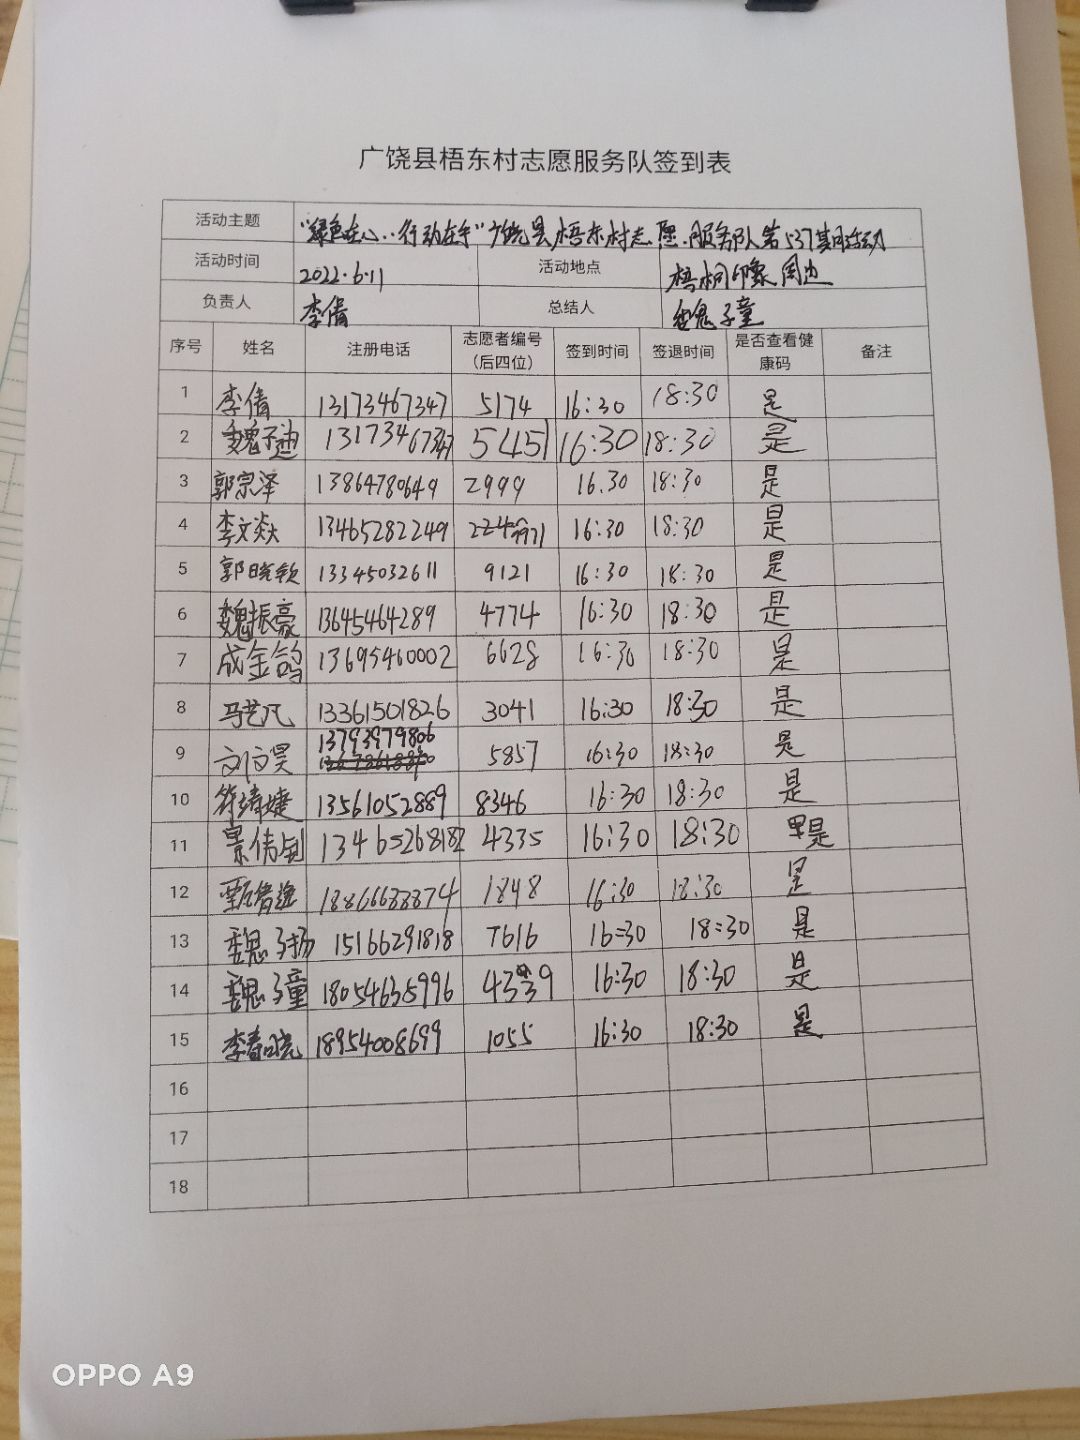 广饶县梧东村志愿服务队签到表
活动主题 “绿色在心..行动在手”广饶县梧东村志愿.服务队第537期活动
活动时间 2022.6.11 活动地点 梧桐印象周边
负责人 李倩 总结人 魏子童
序号 姓名 注册电话 志愿者编号（后四位） 签到时间 签退时间 是否查看健康码 备注
1 李倩 13173467347 5174 16:30 18:30 是
2 魏子迪 13173467347 5451 16:30 18:30 是
3 郭宗泽 13864780649 2999 16.30 18:30 是
4 李文焱 13465282249 16:30 18:30 是
5 郭晓钦 13345032611 9121 16:30 18:30 是
6 魏振豪 13645464289 4774 16:30 18:30 是
7 成金鸽 13695460002 6628 16:30 18:30 是
8 马艺凡 13361501826 3041 16:30 18:30 是
9 刘文昊 13793979806 5857 16:30 18:30 是
10 13561052889 8346 16:30 18:30 是
11 13465268182 4335 16:30 18:30 是
12 18866688874 1848 16:30 18:30 是
13 魏子扬 15166291818 7616 16:30 18:30 是
14 魏子童 18054635996 4339 16:30 18:30 是
15 李春晓 18954008699 1055 16:30 18:30 是
16
17
18
OPPO A9